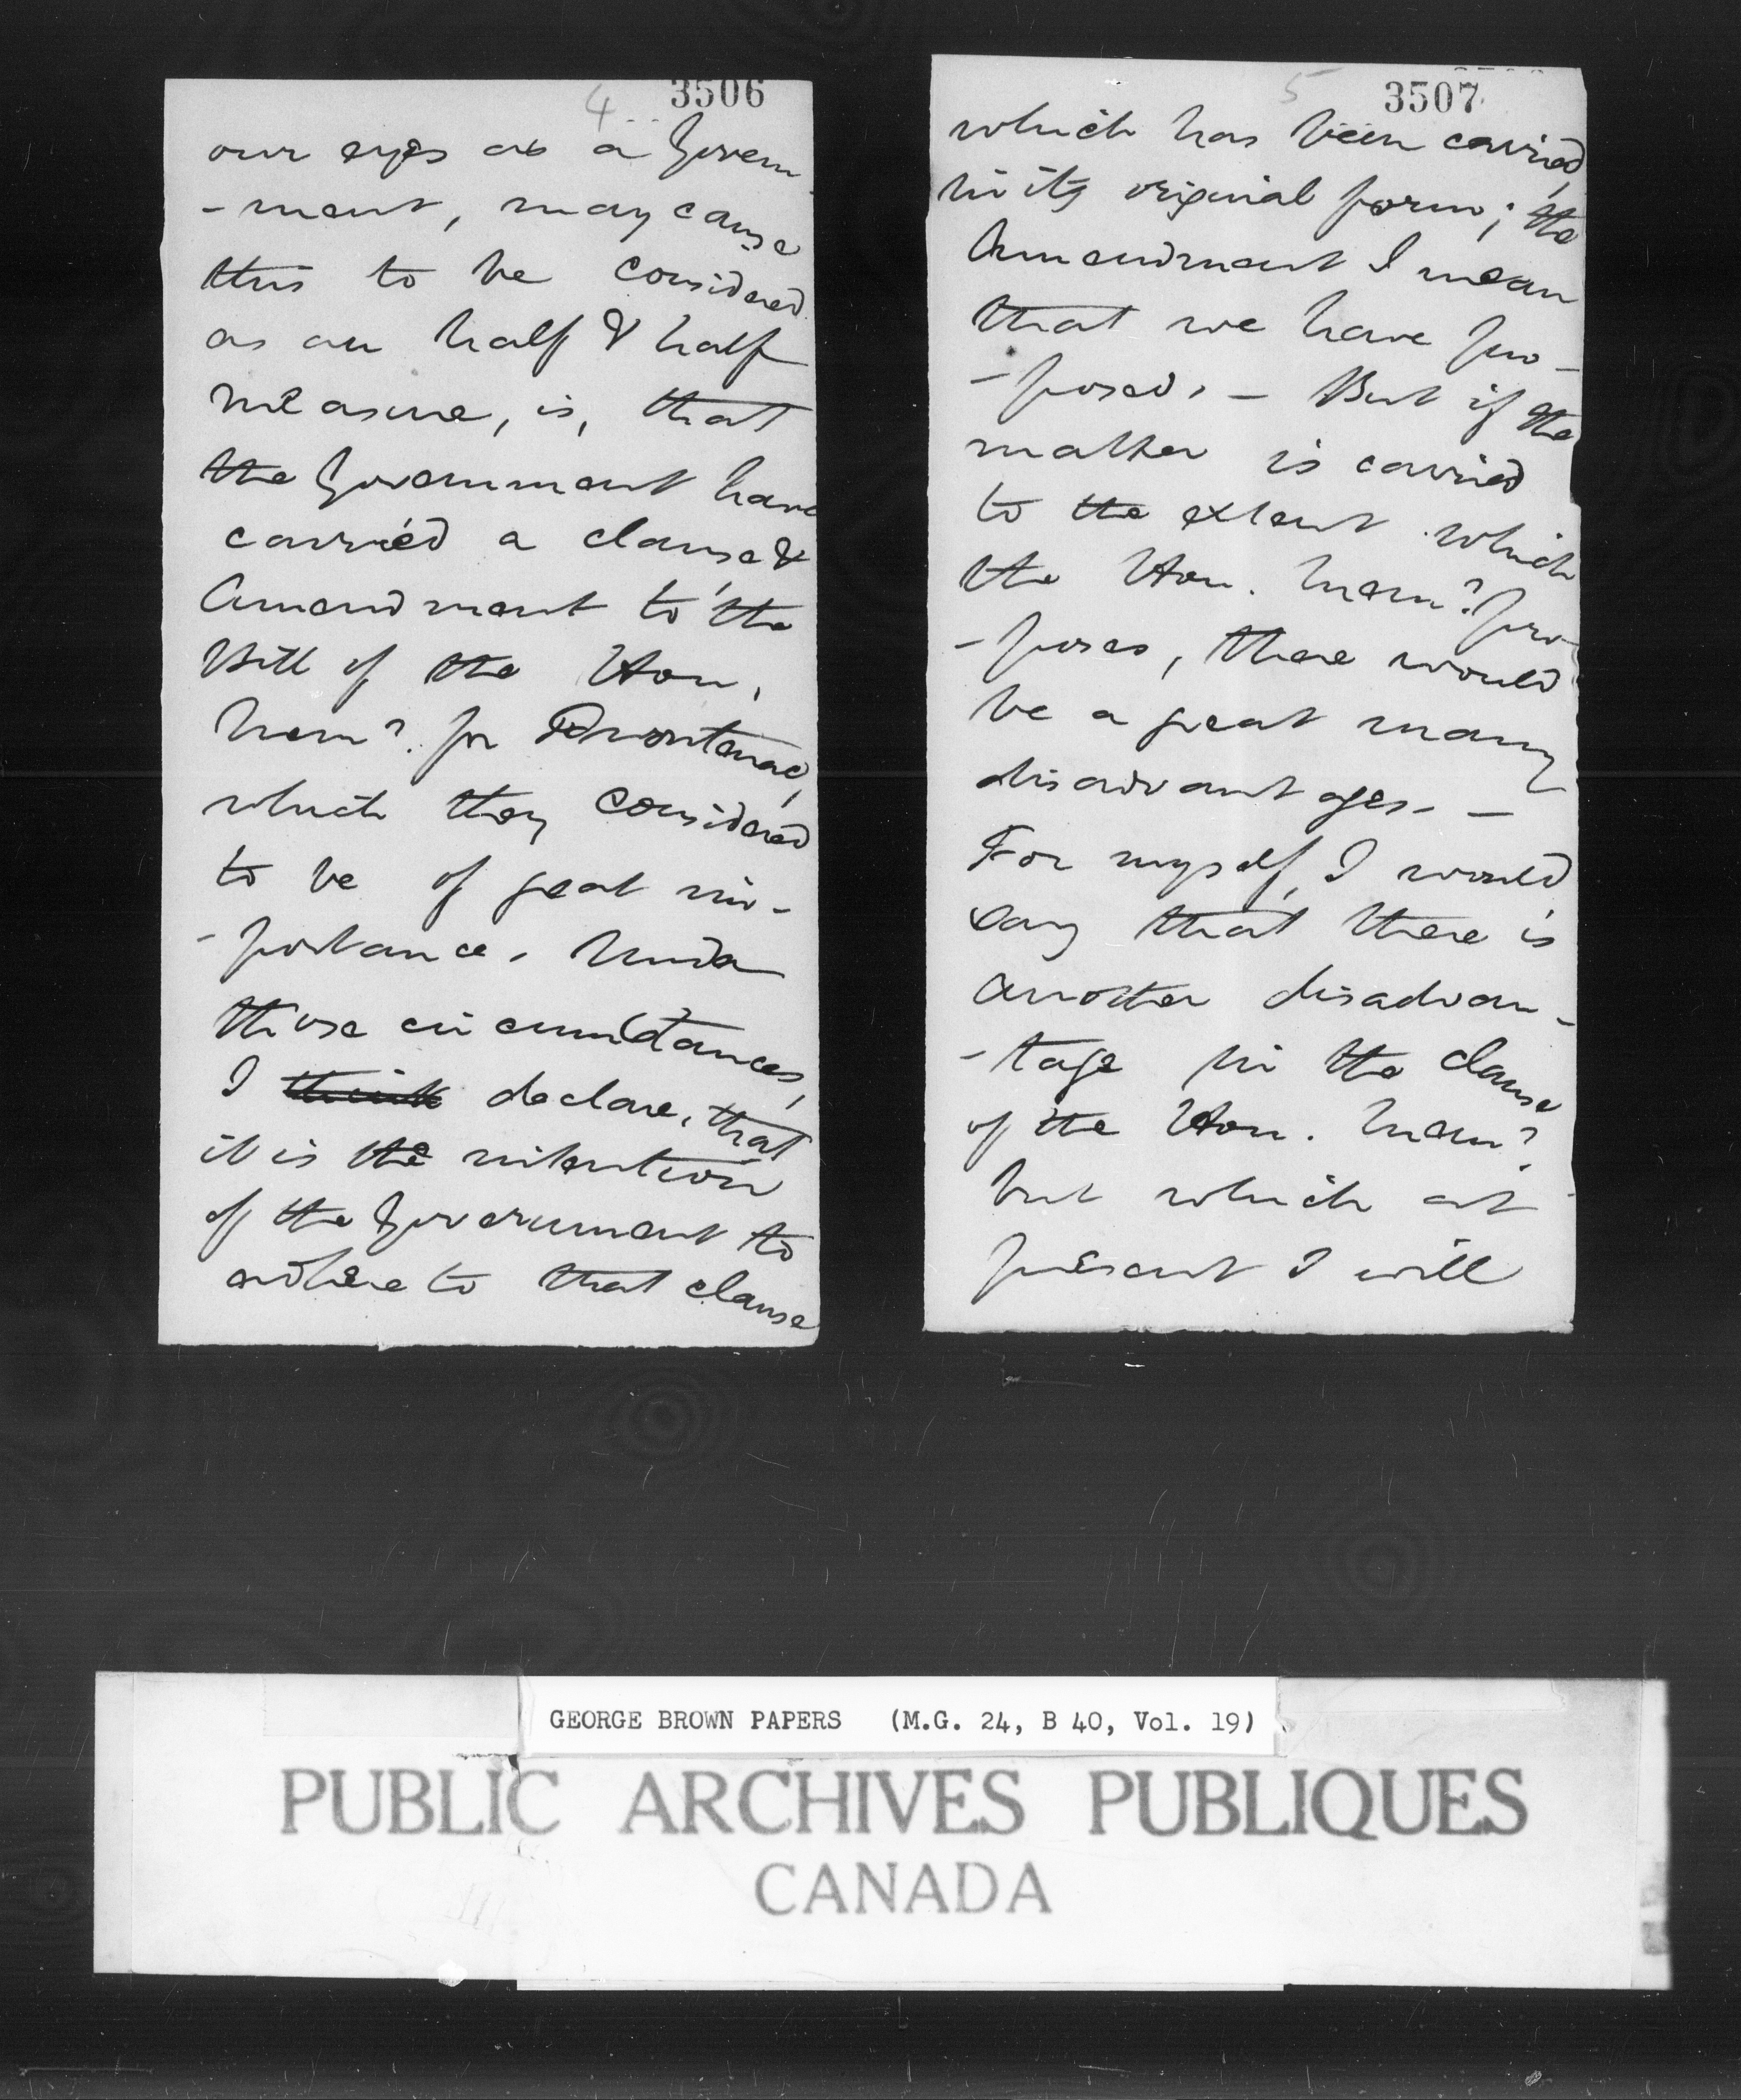 4 3506
our eyes as a Govern-
-ment, may cause
this to be considered
as an half & half
measure, is, that
the Government have
carried a clause &
Amendment to the
Bill of the Hon.
Mem? for Frontenac,
which they considered
to be of great im-
-portance. Under
those circumstances,
I think declare, that
it is the intention
of the Government to
adhere to that clause
5 3507
which has been carried,
in its original form; the
Amendment I mean
that we have pro-
-posed. - But if the
matter is carried
to the extent which
the Hon. Mem? pro-
-poses, there would
be a great many
disadvantages. -
For myself, I would
say that there is
another disadvan-
-tage in the clause
of the Hon. Mem?
but which at
present I will
GEORGE BROWN PAPERS (M.G. 24, B 40, Vol. 19)
PUBLIC ARCHIVES PUBLIQUES
CANADA